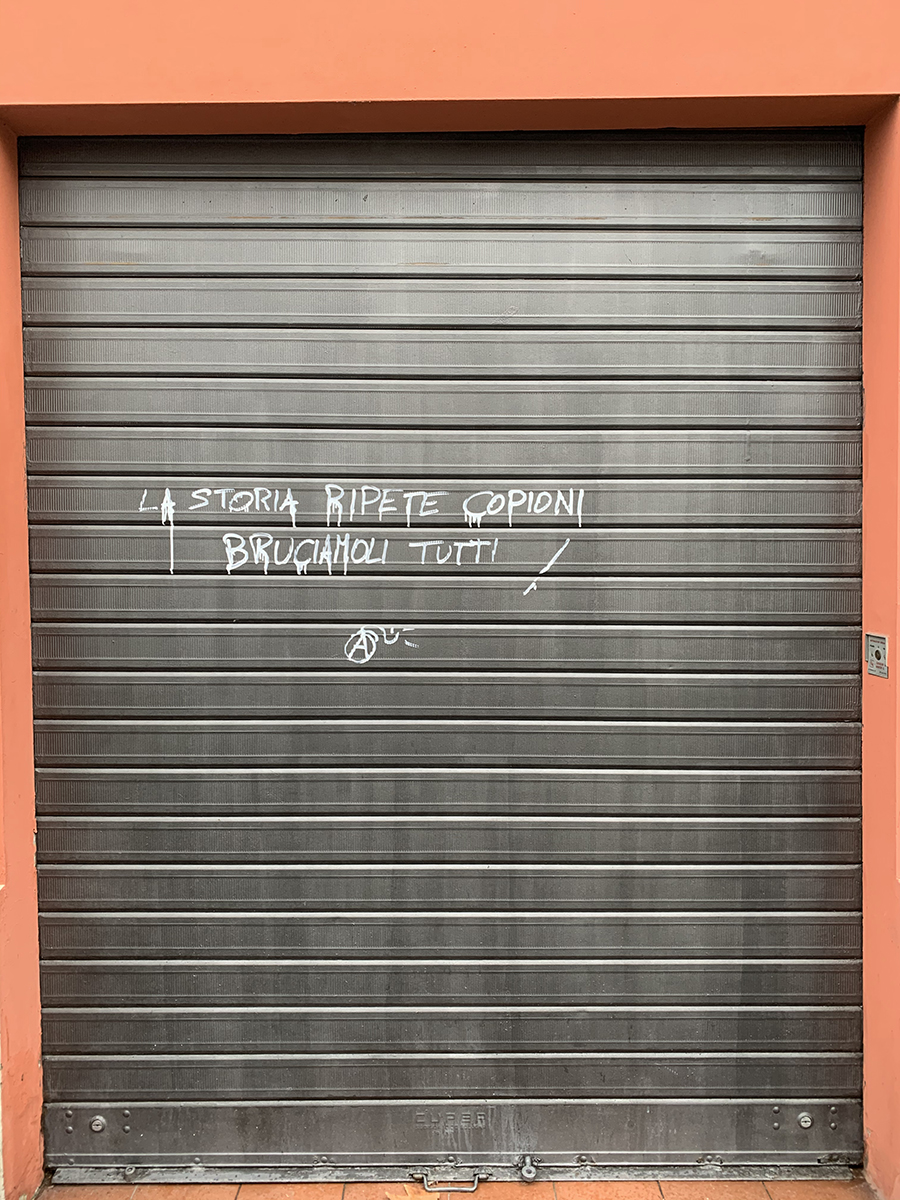 LA STORIA RIPETE COPIONI
BRUCIAMOLI TUTTI
A